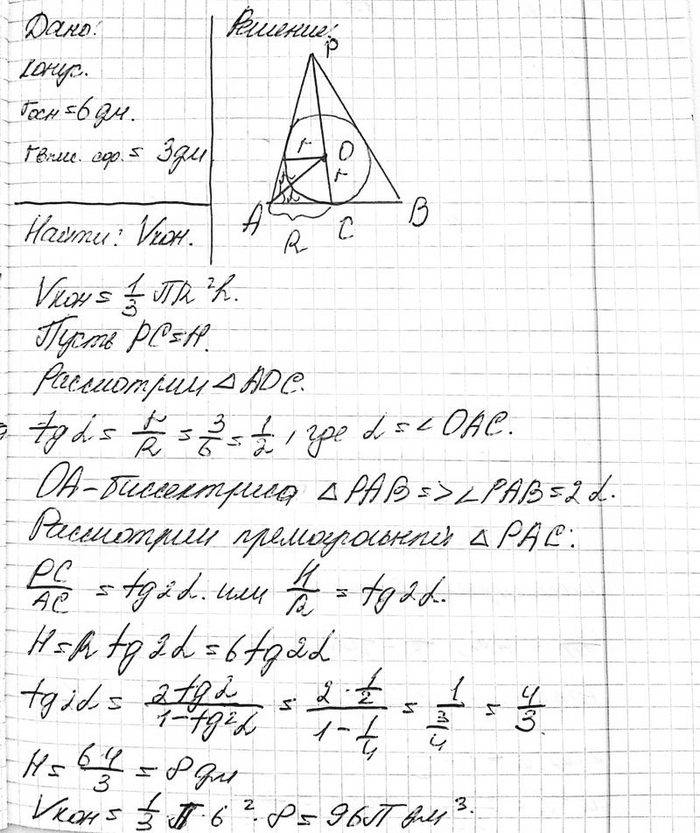 Дано:
конус.
rосн = 6 дм.
rвпис. сф. = 3 дм
Найти: Vкон.
Решение:
P
r
O
r
A
C
B
R
Vкон = 1/3 πR²h.
Пусть PC = H.
Рассмотрим △AOC.
tg α = r/R = 3/6 = 1/2, где α = ∠OAC.
OA - биссектриса △PAB => ∠PAB = 2α.
Рассмотрим прямоугольный △PAC:
PC/AC = tg 2α. или H/R = tg 2α.
H = R tg 2α = 6 tg 2α
tg 2α = 2 tg α/(1 - tg² α) = (2 · 1/2)/(1 - 1/4) = 1/(3/4) = 4/3.
H = 6·4/3 = 8 дм
Vкон = 1/3 π · 6² · 8 = 96π дм³.